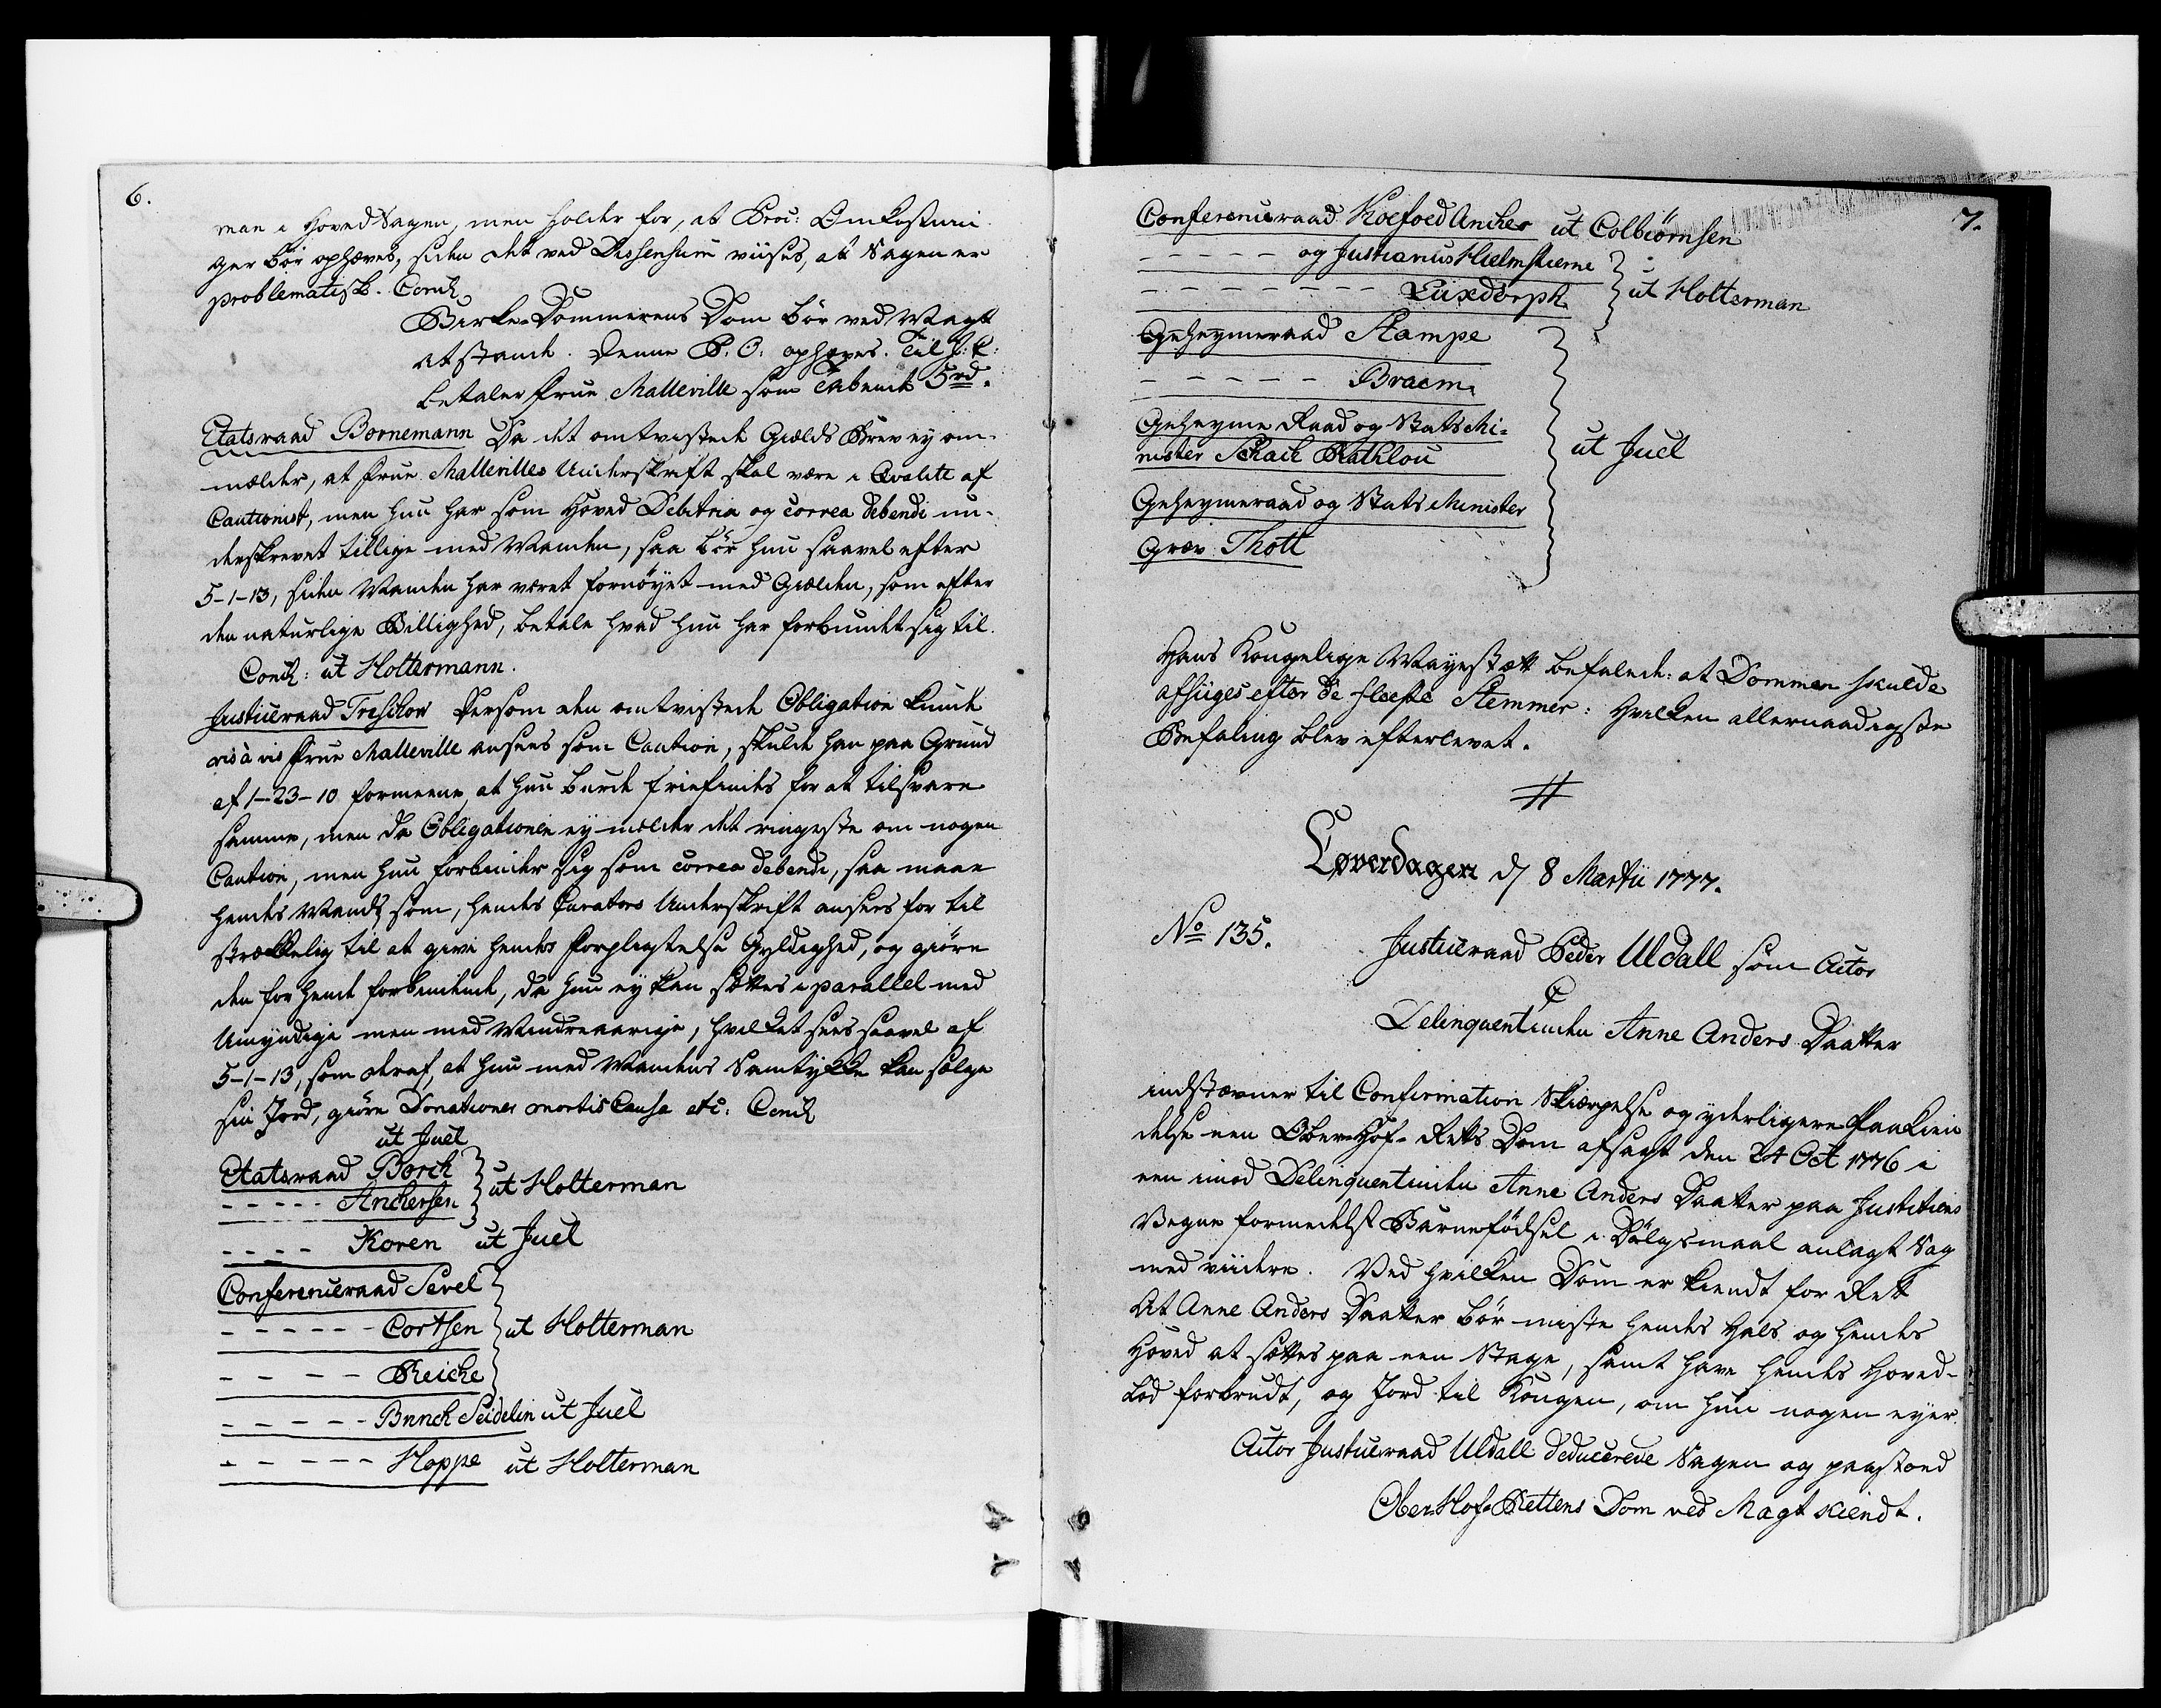 6.
man i Hoved Sagen, men holder for, at Proc: Omkostnin-
ger bør ophæves, siden det ved Dissensum viises, at Sagen er
problematisk. Concl
Birke-Dommerens Dom bør ved Magt
at stande. Denne P. O: ophæves. Til J: C:
betaler Frue Malleville som Tabende 5 rd.
Etatsraad Bornemann Da det omtvistede Gields Brev ey om-
melder, at Frue Mallevilles Underskrift skal være i Qvalité af
Cautionist, men hun har som Hoved Debitria og correa debendi un-
derskrevet tillige med Manden, saa bør hun saavel efter
5-1-13, siden Manden har været fornøyet med Gielden, som efter
den naturlige Billighed, betale hvad hun har forbundet sig til.
Concl: ut Holtermann.
Justiceraad Treschow Dersom den omtvistede Obligation kunde
vis à vis Frue Malleville ansees som Caution, skulde han paa Grund
af 1-23-10 formeene, at hun burde friefindes for at tilsvare
samme, men da Obligationen ey melder det ringeste om nogen
Caution, men hun forbinder sig som correa debendi, saa maae
hendes Mands som, hendes Curators Underskrift ansees for til
strækkelig til at give hendes Forpligtelse Gyldighed, og giøre
den for hende forbindende, da hun ey kan sættes i parallel med
Umyndige men med Mindreaarige, hvilket sees saavel af
5-1-13, som deraf, at hun med Mandens Samtykke kan sælge
sin Jord, giøre Donationes mortis Causa etc: Concl
ut Juel
Etatsraad Borch
----- Anchersen } ut Holterman
---- Koren ut Juel
Conferenceraad Sevel
------ Cortsen } ut Holterman
---- Reiche
----- Bnnch Seidelin ut Juel
------ Hoppe ut Holterman
7.
Conferenceraad Koefoed Ancher ut Colbiørnsen
----- og Justiarius Hielmstierne
------- Luxdorph } ut Holterman
Geheymeraad Stampe
----- Braem
Geheyme Raad og Stats Mi-
nister Schack Rathlou } ut Juel
Geheymeraad og Stats Minister
Grev Thott
Hans Kongelige Mayestæt befalede: at Dommen skulde
afsiiges efter de fleeste Stemmer: Hvilken allernaadigste
Befaling blev efterlevet.
Løverdagen d/ 8 Martii 1777.
No 135.
Justiceraad Peder Uldall som Actor
C
Delinquentinden Anne Anders Daatter
indstævner til Confirmation Skiærpelse og yderligere Paakien-
delse een Ober-Hof-Rets Dom afsagt den 24 Oct 1776 i
een imod Delinquentinden Anne Anders Daatter paa Justitiens
Vegne formedelst Barnefødsel i Dølgsmaal anlagt Sag
med viidere. Ved hvilken Dom er kiendt for Rett
At Anne Anders Daatter bør miste hendes Hals og hendes
Hoved at sættes paa een Stage, samt have hendes Hoved-
lod forbrudt, og Jord til Kongen, om hun nogen eyer.
Actor Justiceraad Uldall deducerede Sagen og paastoed
Ober-Hof-Rettens Dom ved Magt kiendt.